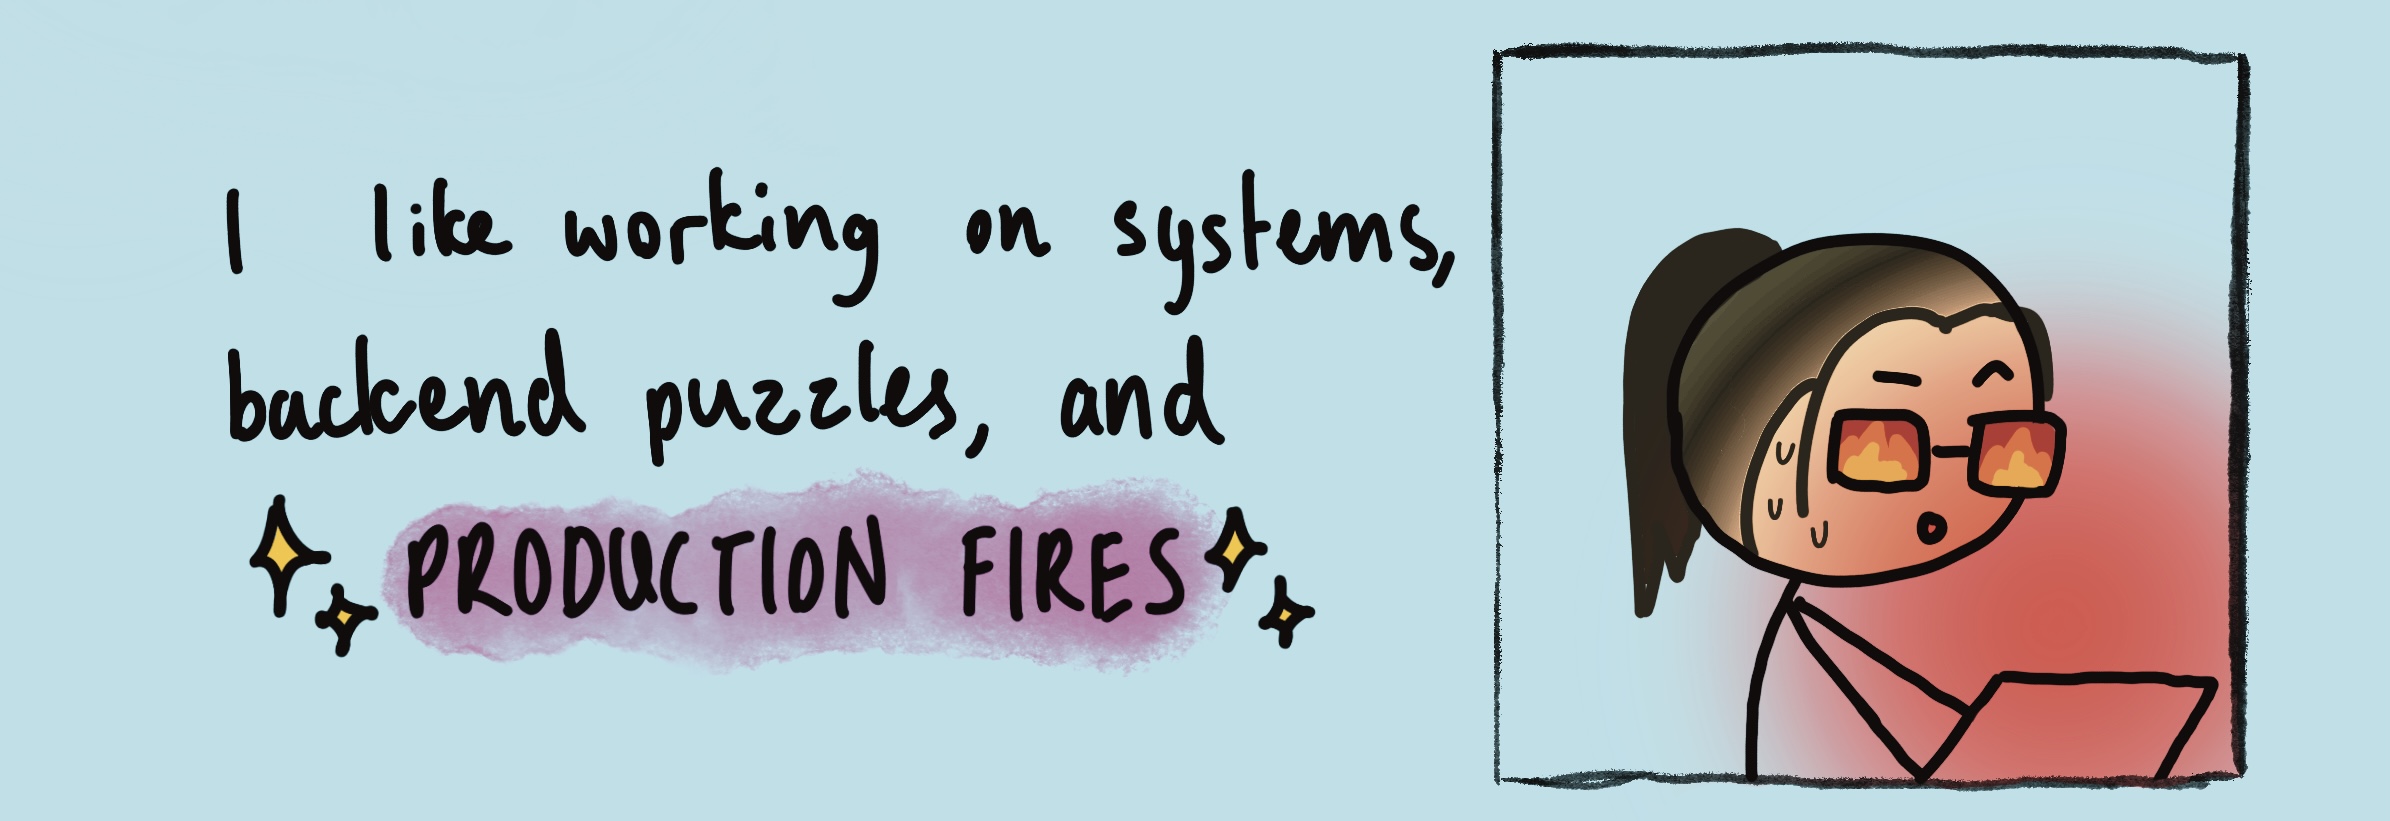 I like working on systems,
backend puzzles, and
PRODUCTION FIRES